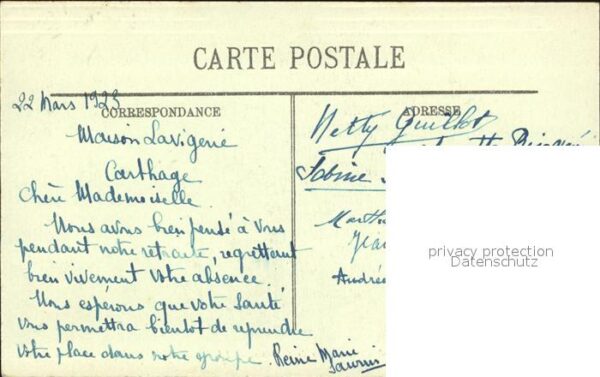 CARTE POSTALE
22 Mars 1923
CORRESPONDANCE
Maison Lavigerie
Carthage
Chère Mademoiselle
Nous avons bien pensé à vous
pendant notre retraite, regrettant
bien vivement votre absence.
Nous espérons que votre santé
vous permettra bientôt de reprendre
votre place dans notre groupe. Reine Marie
ADRESSE
Netty Guillot
Sabine
Marth
Jea
André
privacy protection
Datenschutz